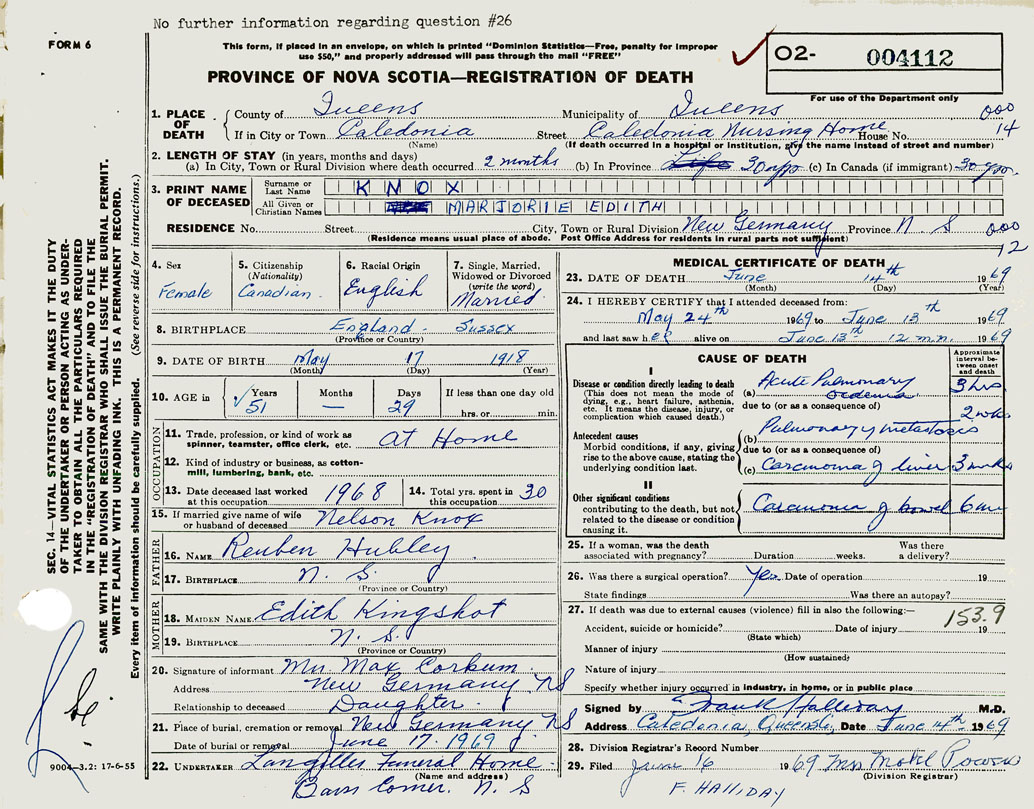 No further information regarding question #26
FORM 6
This form, if placed in an envelope, on which is printed "Dominion Statistics—Free, penalty for improper
use $50," and properly addressed will pass through the mail "FREE"
PROVINCE OF NOVA SCOTIA—REGISTRATION OF DEATH
O2- 004112
For use of the Department only
1. PLACE OF DEATH
County of Queens Municipality of Queens 000
If in City or Town Caledonia Street Caledonia Nursing Home House No. 14
(Name) (If death occurred in a hospital or Institution, give the name instead of street and number)
2. LENGTH OF STAY (in years, months and days)
(a) In City, Town or Rural Division where death occurred 2 months (b) In Province Life 30 yrs (c) In Canada (if immigrant) 30 yrs.
3. PRINT NAME OF DECEASED
Surname or Last Name KNOX
All Given or Christian Names MARJORIE EDITH
RESIDENCE No. Street City, Town or Rural Division New Germany Province N. S 000
(Residence means usual place of abode. Post Office Address for residents in rural parts not sufficient) 12
4. Sex Female
5. Citizenship (Nationality) Canadian
6. Racial Origin English
7. Single, Married, Widowed or Divorced (write the word) Married
8. BIRTHPLACE England. Sussex
(Province or Country)
9. DATE OF BIRTH May 17 1918
(Month) (Day) (Year)
10. AGE in Years Months Days If less than one day
51 — 29 hrs. or min.
OCCUPATION
11. Trade, profession, or kind of work as spinner, teamster, office clerk, etc. At Home
12. Kind of industry or business, as cotton-mill, lumbering, bank, etc.
13. Date deceased last worked at this occupation 1968
14. Total yrs. spent in this occupation 30
15. If married give name of wife or husband of deceased Nelson Knox
FATHER
16. NAME Reuben Hubley
17. BIRTHPLACE N. S.
(Province or Country)
MOTHER
18. MAIDEN NAME Edith Kingshot
19. BIRTHPLACE N. S.
(Province or Country)
20. Signature of informant Max Corkum
Address New Germany NS
Relationship to deceased Daughter
21. Place of burial, cremation or removal New Germany NS
Date of burial or removal June 17. 1969
22. UNDERTAKER Langilles Funeral Home
(Name and address)
Corner. N. S
MEDICAL CERTIFICATE OF DEATH
23. DATE OF DEATH June 14th 1969
(Month) (Day) (Year)
24. I HEREBY CERTIFY that I attended deceased from:
May 24th 1969 to June 13th 1969
and last saw her alive on June 13th 12 m.n. 1969
CAUSE OF DEATH
Approximate interval between onset and death
I
Disease or condition directly leading to death
(This does not mean the mode of dying, e.g., heart failure, asthenia, etc. It means the disease, injury, or complication which caused death.)
(a) Acute Pulmonary oedema 3 hrs
due to (or as a consequence of)
Antecedent causes
Morbid conditions, if any, giving rise to the above cause, stating the underlying condition last.
(b) Pulmonary metastasis 2 wks
due to (or as a consequence of)
(c) Carcinoma of liver 3 mths
II
Other significant conditions
contributing to the death, but not related to the disease or condition causing it.
Carcinoma of bowel 6
25. If a woman, was the death associated with pregnancy? Duration weeks. Was there a delivery?
26. Was there a surgical operation? Yes Date of operation 19
State findings Was there an autopsy?
27. If death was due to external causes (violence) fill in also the following:— 153.9
Accident, suicide or homicide? Date of injury 19
(State which)
Manner of injury
(How sustained)
Nature of injury
Specify whether injury occurred in industry, in home, or in public place
Signed by Frank Halliday M.D.
Address Caledonia, Queens Date June 14th 1969
28. Division Registrar's Record Number
29. Filed June 16 1969 Mrs
(Division Registrar)
F. HALLIDAY
SEC. 14—VITAL STATISTICS ACT MAKES IT THE DUTY
OF THE UNDERTAKER OR PERSON ACTING AS UNDER-
TAKER TO OBTAIN ALL THE PARTICULARS REQUIRED
IN THE "REGISTRATION OF DEATH" AND TO FILE THE
SAME WITH THE DIVISION REGISTRAR WHO SHALL ISSUE THE BURIAL PERMIT.
WRITE PLAINLY WITH UNFADING INK. THIS IS A PERMANENT RECORD.
Every item of information should be carefully supplied. (See reverse side for instructions.)
9004—3.2: 17-6-55